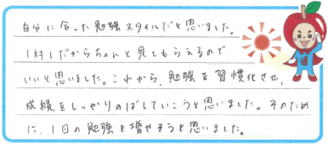 自分に合った勉強スタイルだと思いました。
1対1だからちゃんと見てもらえるので
いいと思いました。これから、勉強を習慣化させ、
成績をしっかりのばしていこうと思いました。そのため
に、1日の勉強を増やそうと思いました。